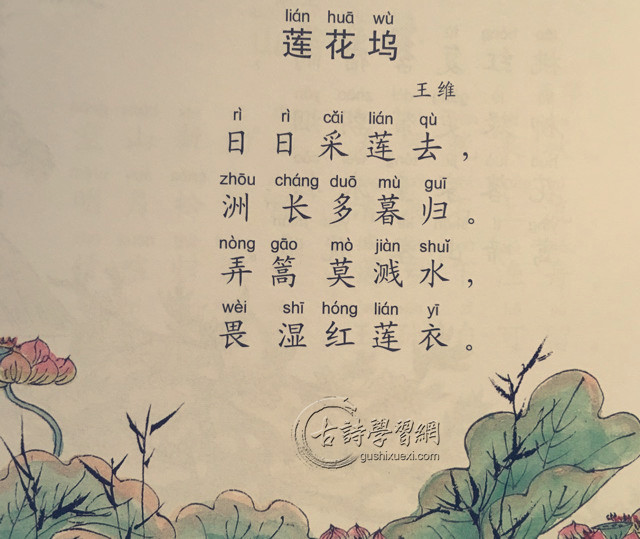 lián huā wù
莲花坞
王维
rì rì cǎi lián qù
日日采莲去，
zhōu cháng duō mù guī
洲长多暮归。
nòng gāo mò jiàn shuǐ
弄篙莫溅水，
wèi shī hóng lián yī
畏湿红莲衣。
古詩學習網
gushixuexi.com